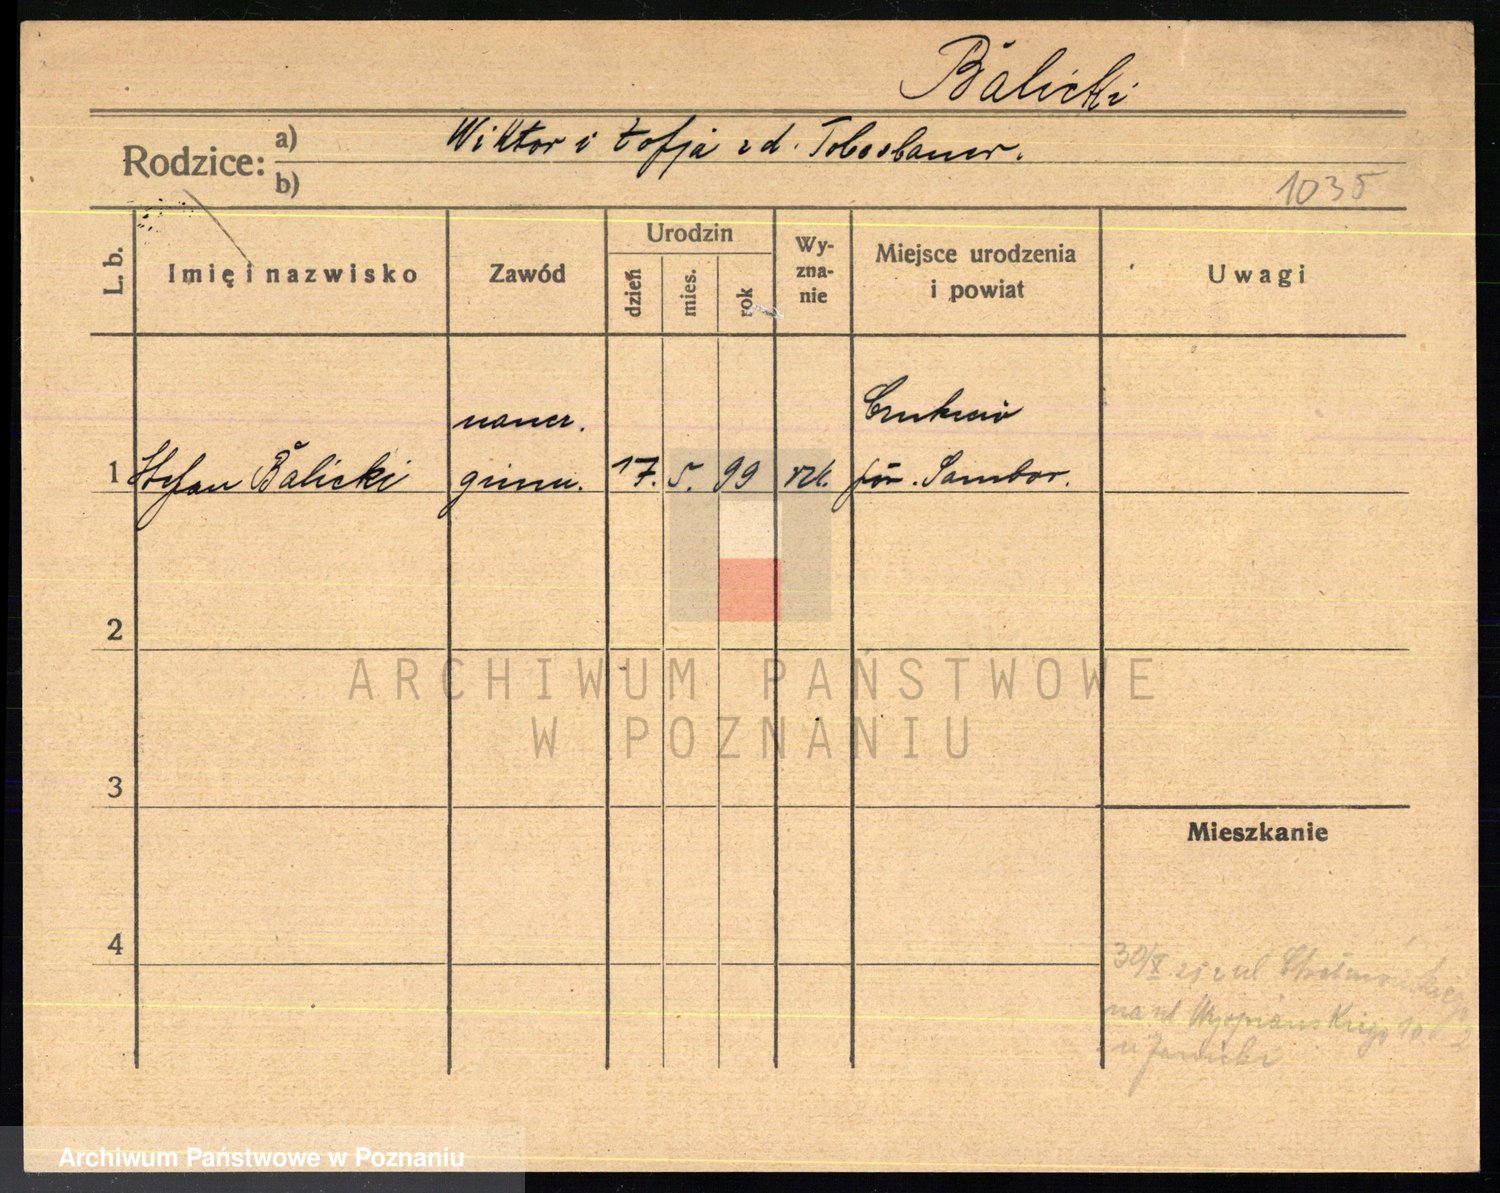 Bálicki
Rodzice: a) Wiktor i Zofja z d.
b)
1035
L. b.
Imię i nazwisko
Zawód
Urodzin
dzień
mies.
rok
Wy-
zna-
nie
Miejsce urodzenia
i powiat
Uwagi
naucz.
1 Stefan Bálicki gimn. 17. 5. 99 rzk. pow. Sambor.
2
ARCHIWUM PAŃSTWOWE
W POZNANIU
3
Mieszkanie
4
30/X z ul
na ul Wyspiańskiego 10
u
Archiwum Państwowe w Poznaniu